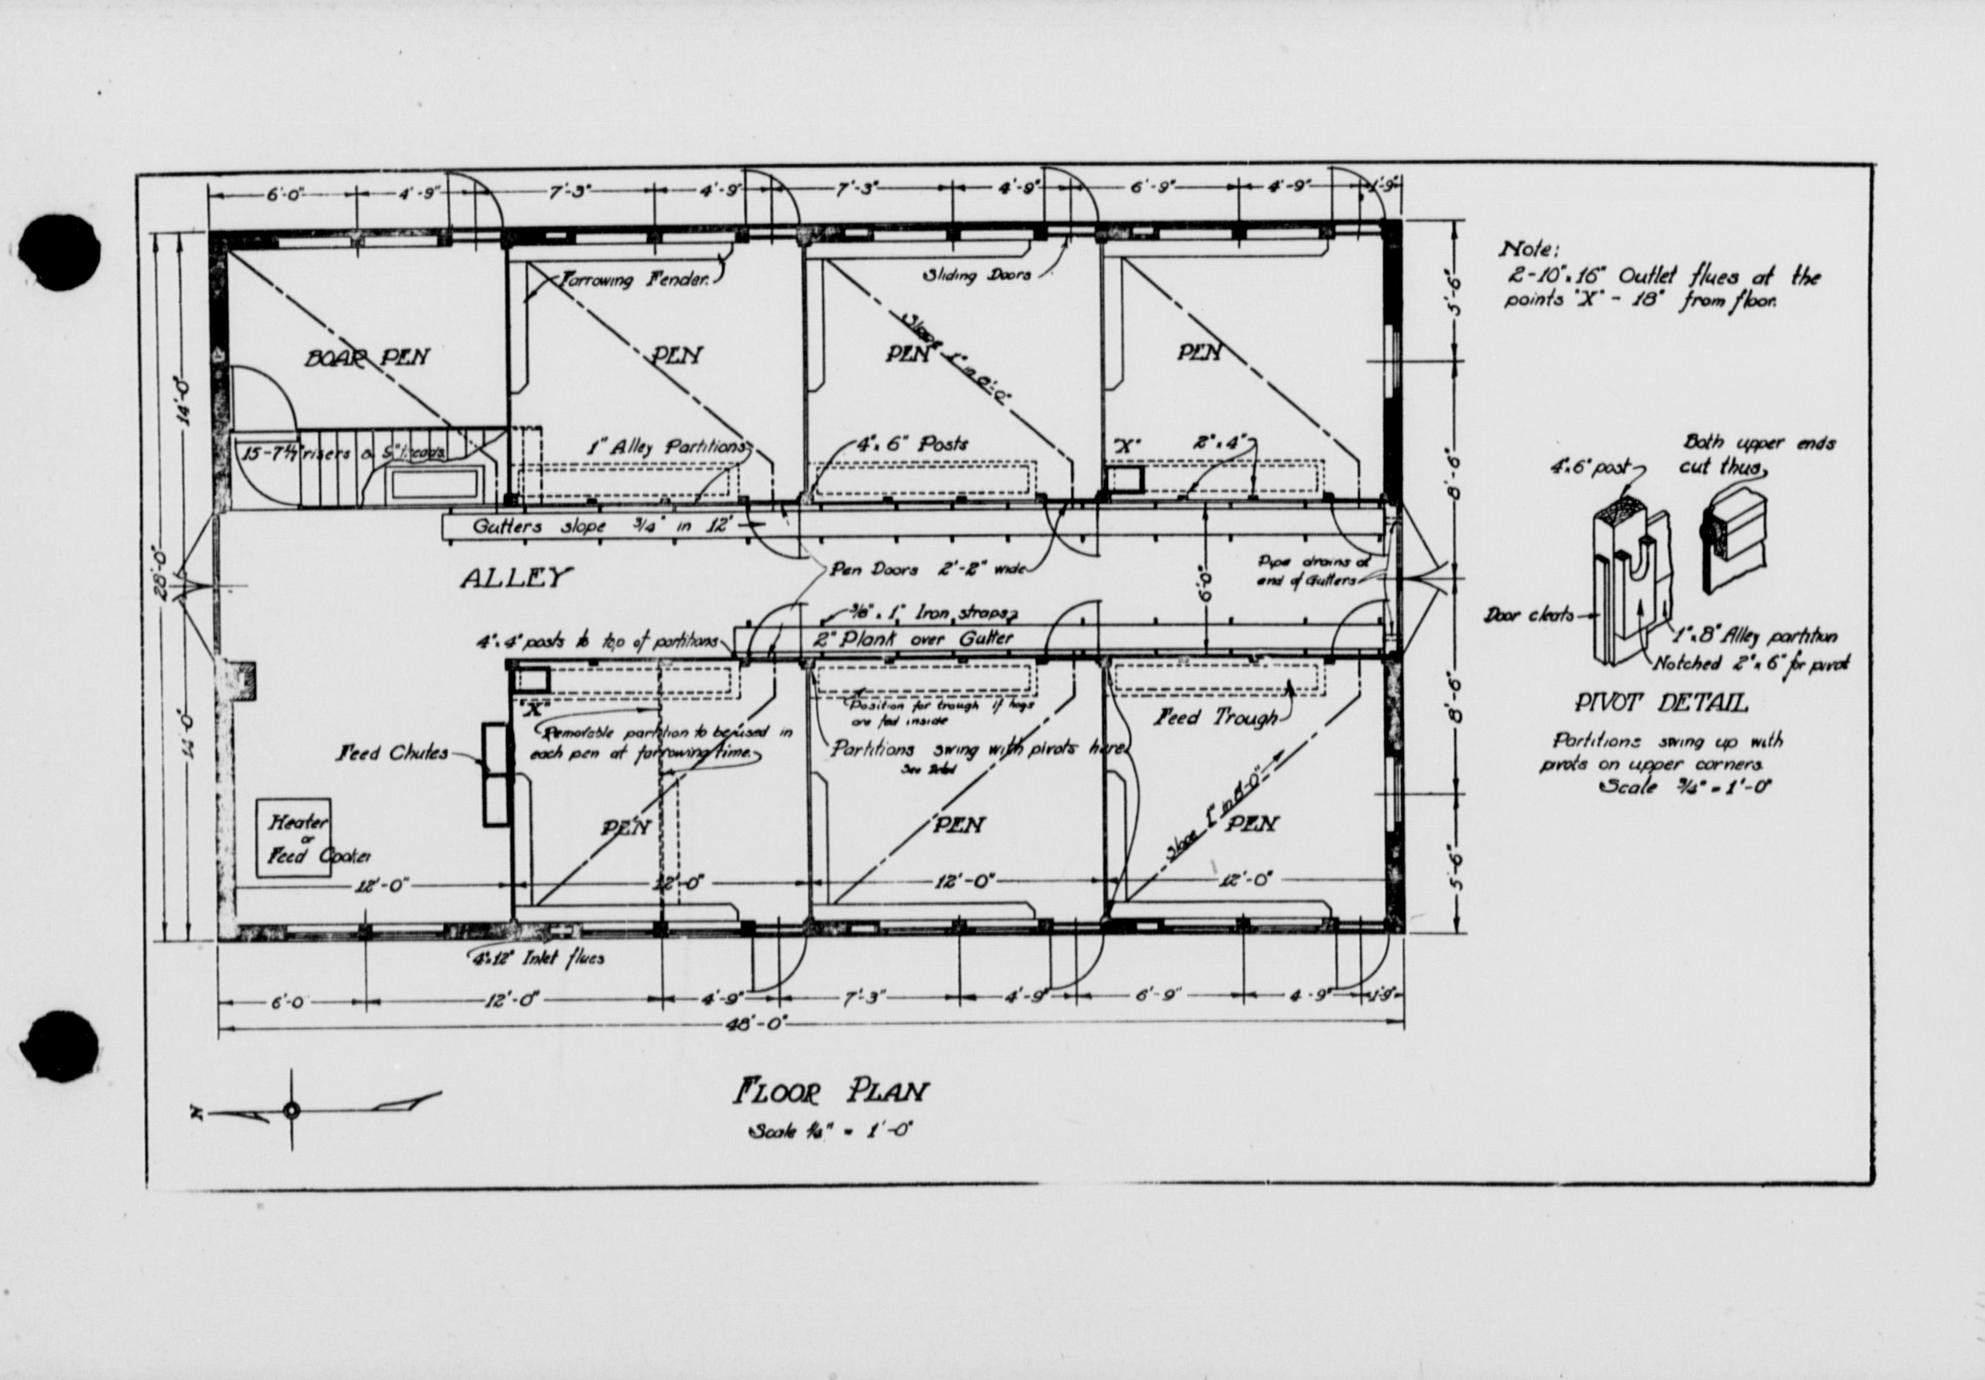 6'-0" 4'-9" 7'-3" 4'-9" 7'-3" 4'-9" 6'-9" 4'-9" 1'-9"
Note:
2-10"x16" Outlet flues at the
points "X" - 18" from floor.
Farrowing Fender.
Sliding Doors
5'-6"
BOAR PEN
PEN
PEN
PEN
Slope 1" in 8'-0"
14'-0"
15-7¼" risers & 9" treads
1" Alley Partitions
4"x6" Posts
"X"
2"x4"
8'-6"
Both upper ends
cut thus
4"x6" post
Gutters slope ¾" in 12'
ALLEY
Pen Doors 2'-2" wide
6'-0"
Pipe drains at
end of Gutters
28'-0"
⅜"x1" Iron straps
4"x4" posts to top of partitions
2" Plank over Gutter
Door cleats
1"x8" Alley partition
Notched 2"x6" for pivot
PIVOT DETAIL
Partitions swing up with
pivots on upper corners.
Scale ¾" = 1'-0"
"X"
Position for trough if hogs
are fed inside
Feed Trough
8'-6"
14'-0"
Removable partition to be used in
each pen at farrowing time.
Partitions swing with pivots here
See Detail
Feed Chutes
Slope 1" in 8'-0"
Heater
or
Feed Cooker
PEN
PEN
PEN
12'-0" 12'-0" 12'-0" 12'-0"
5'-6"
4"x12" Inlet flues
6'-0 12'-0" 4'-9" 7'-3" 4'-9" 6'-9" 4'-9" 1'-9"
48'-0"
N
FLOOR PLAN
Scale ¼" = 1'-0"